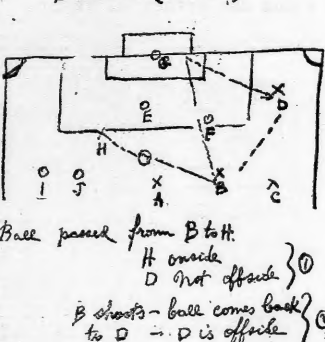 G
X
D
E
F
H
I J X X X
A B C
Ball passed from B to H.
H onside
D not offside } ①
B shoots - ball comes back
to D - D is offside